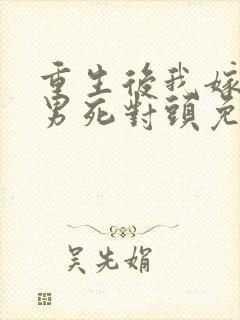 重生後我嫁
男死對頭免
吴先娟